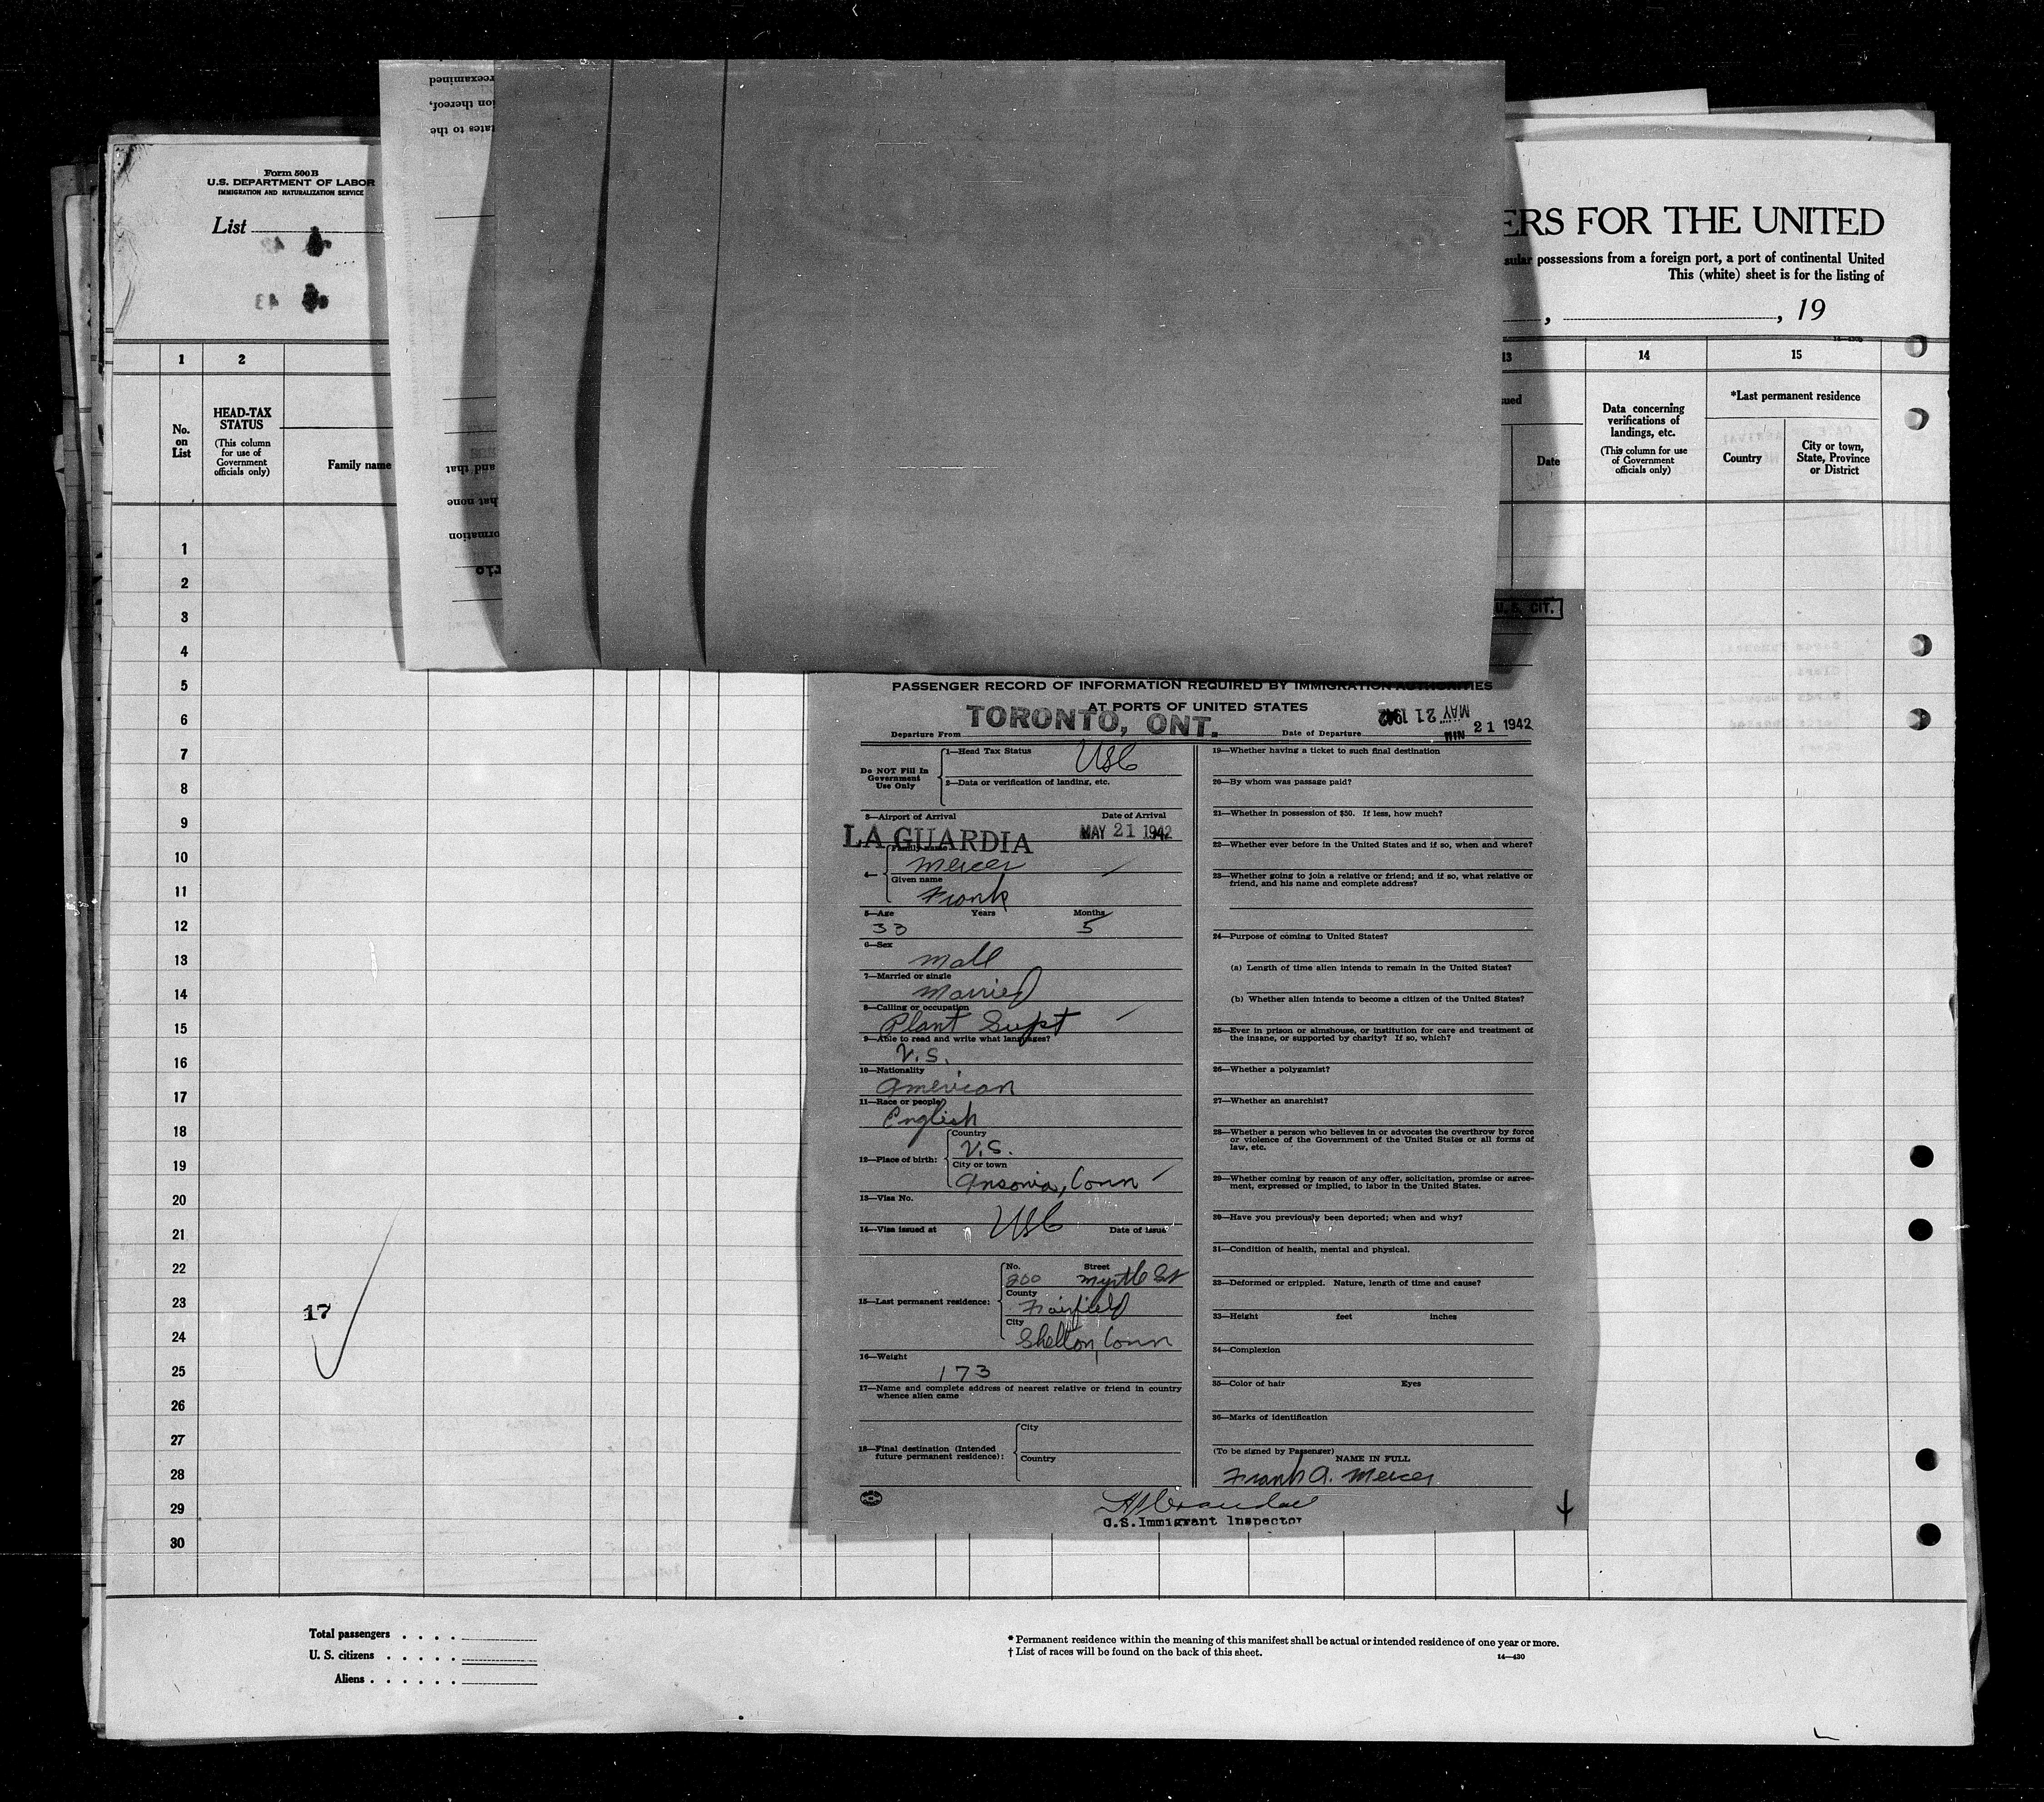 reexamined
ion thereof,
tates to the
and that
hat none
ormation
rio
Form 500 B
U.S. DEPARTMENT OF LABOR
IMMIGRATION AND NATURALIZATION SERVICE
List
ERS FOR THE UNITED
sular possessions from a foreign port, a port of continental United
This (white) sheet is for the listing of
, , 19
1 2 13 14 15
No. on List
HEAD-TAX STATUS
(This column for use of Government officials only)
Family name
sued
Date
Data concerning verifications of landings, etc.
(This column for use of Government officials only)
*Last permanent residence
Country
City or town, State, Province or District
1
2
3
4
5
6
7
8
9
10
11
12
13
14
15
16
17
18
19
20
21
22
23
24
25
26
27
28
29
30
17
U.S. CIT.
PASSENGER RECORD OF INFORMATION REQUIRED BY IMMIGRATION AUTHORITIES
AT PORTS OF UNITED STATES
Departure From TORONTO, ONT. Date of Departure MAY 21 1942
21 1942
Do NOT Fill In Government Use Only
1—Head Tax Status USC
2—Data or verification of landing, etc.
3—Airport of Arrival Date of Arrival
LA GUARDIA MAY 21 1942
4— Family name
Mercer
Given name
Frank
5—Age Years Months
33 5
6—Sex
Male
7—Married or single
Married
8—Calling or occupation
Plant Supt
9—Able to read and write what languages?
U.S.
10—Nationality
American
11—Race or people
English
12—Place of birth: Country
U.S.
City or town
Ansonia, Conn
13—Visa No.
USC
14—Visa issued at Date of issue
15—Last permanent residence: No. Street
200 Myrtle St
County
Fairfield
City
Shelton, Conn
16—Weight
173
17—Name and complete address of nearest relative or friend in country
whence alien came
18—Final destination (Intended
future permanent residence): City
Country
19—Whether having a ticket to such final destination
20—By whom was passage paid?
21—Whether in possession of $50. If less, how much?
22—Whether ever before in the United States and if so, when and where?
23—Whether going to join a relative or friend; and if so, what relative or
friend, and his name and complete address?
24—Purpose of coming to United States?
(a) Length of time alien intends to remain in the United States?
(b) Whether alien intends to become a citizen of the United States?
25—Ever in prison or almshouse, or institution for care and treatment of
the insane, or supported by charity? If so, which?
26—Whether a polygamist?
27—Whether an anarchist?
28—Whether a person who believes in or advocates the overthrow by force
or violence of the Government of the United States or all forms of
law, etc.
29—Whether coming by reason of any offer, solicitation, promise or agree-
ment, expressed or implied, to labor in the United States.
30—Have you previously been deported; when and why?
31—Condition of health, mental and physical.
32—Deformed or crippled. Nature, length of time and cause?
33—Height feet inches
34—Complexion
35—Color of hair Eyes
36—Marks of identification
(To be signed by Passenger)
NAME IN FULL
Frank A. Mercer
U.S. Immigrant Inspector
Total passengers . . . .
U. S. citizens . . . . .
Aliens . . . . . .
* Permanent residence within the meaning of this manifest shall be actual or intended residence of one year or more.
† List of races will be found on the back of this sheet.
14—430